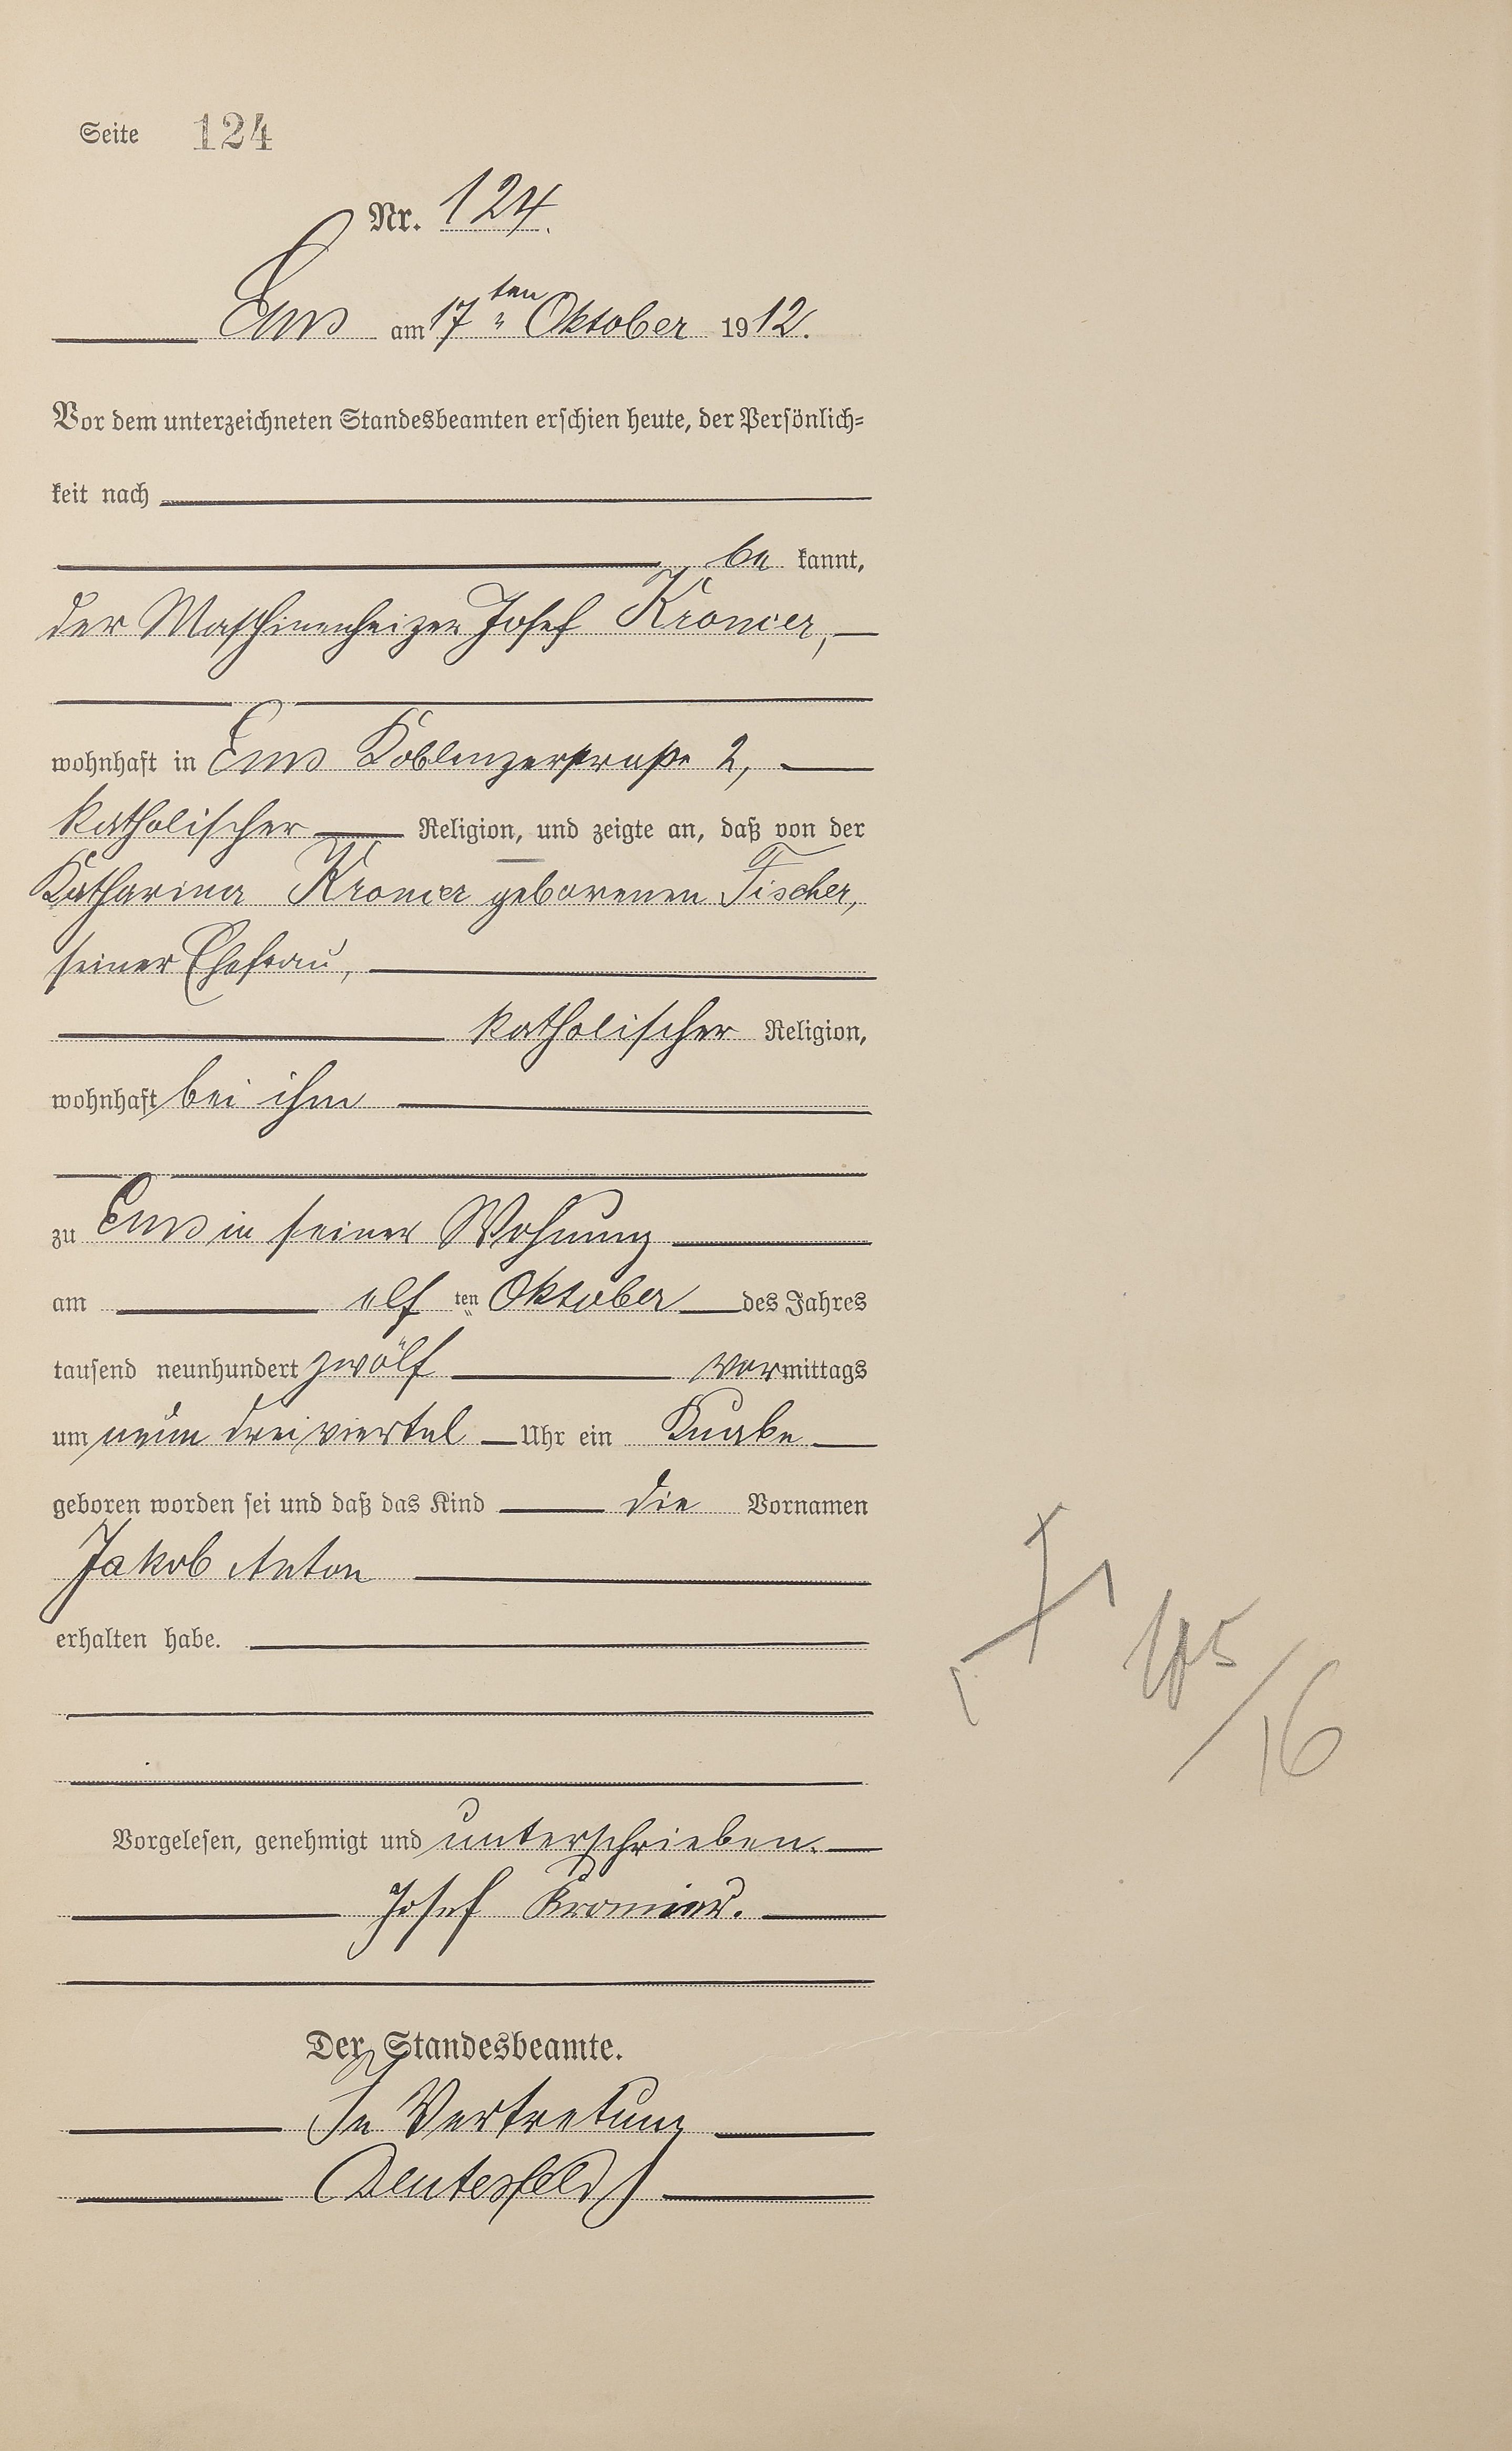 Seite 124
Nr. 124.
Ems am 17ten Oktober 1912.
Vor dem unterzeichneten Standesbeamten erschien heute, der Persönlich=
keit nach
be kannt,
der Maschinenheizer Josef Kromer,
wohnhaft in Ems Koblenzerstraße 2,
katholischer Religion, und zeigte an, daß von der
Katharina Kromer geborenen Fischer,
seiner Ehefrau,
katholischer Religion,
wohnhaft bei ihm
zu Ems in seiner Wohnung
am elf ten Oktober des Jahres
tausend neunhundert zwölf vormittags
um neun dreiviertel Uhr ein Knabe
geboren worden sei und daß das Kind die Vornamen
Jakob Anton
erhalten habe.
Vorgelesen, genehmigt und unterschrieben.
Josef
Der Standesbeamte.
In Vertretung